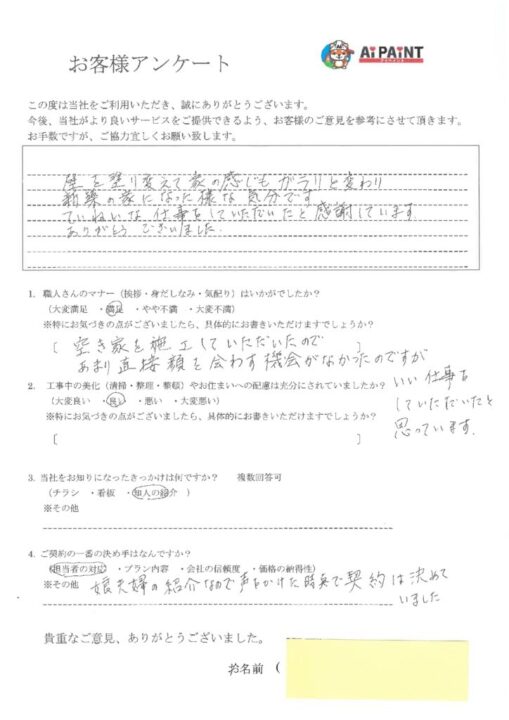 お客様アンケート
AiPAiNT
アイペイント
この度は当社をご利用いただき、誠にありがとうございます。
今後、当社がより良いサービスをご提供できるよう、お客様のご意見を参考にさせて頂きます。
お手数ですが、ご協力宜しくお願い致します。
壁を塗り変えて家の感じもガラリと変わり
新築の家になった様な気分です
ていねいな仕事をしていただいたと感謝しています
ありがとうございました.
1. 職人さんのマナー（挨拶・身だしなみ・気配り）はいかがでしたか？
（大変満足 ・満足 ・やや不満 ・大変不満）
※特にお気づきの点がございましたら、具体的にお書きいただけますでしょうか？
［ 空き家を施工していただいたので
あまり直接顔を会わす機会がなかったのですが
いい仕事を
していただいたと
思っています.
2. 工事中の美化（清掃・整理・整頓）やお住まいへの配慮は充分にされていましたか？
（大変良い ・良い ・悪い ・大変悪い）
※特にお気づきの点がございましたら、具体的にお書きいただけますでしょうか？
［ ］
3. 当社をお知りになったきっかけは何ですか？ 複数回答可
（チラシ ・看板 ・知人の紹介 ）
※その他
4. ご契約の一番の決め手はなんですか？
（担当者の対応 ・プラン内容 ・会社の信頼度 ・価格の納得性）
※その他 娘夫婦の紹介なので声をかけた時点で契約は決めて
いました
貴重なご意見、ありがとうございました。
お名前 （